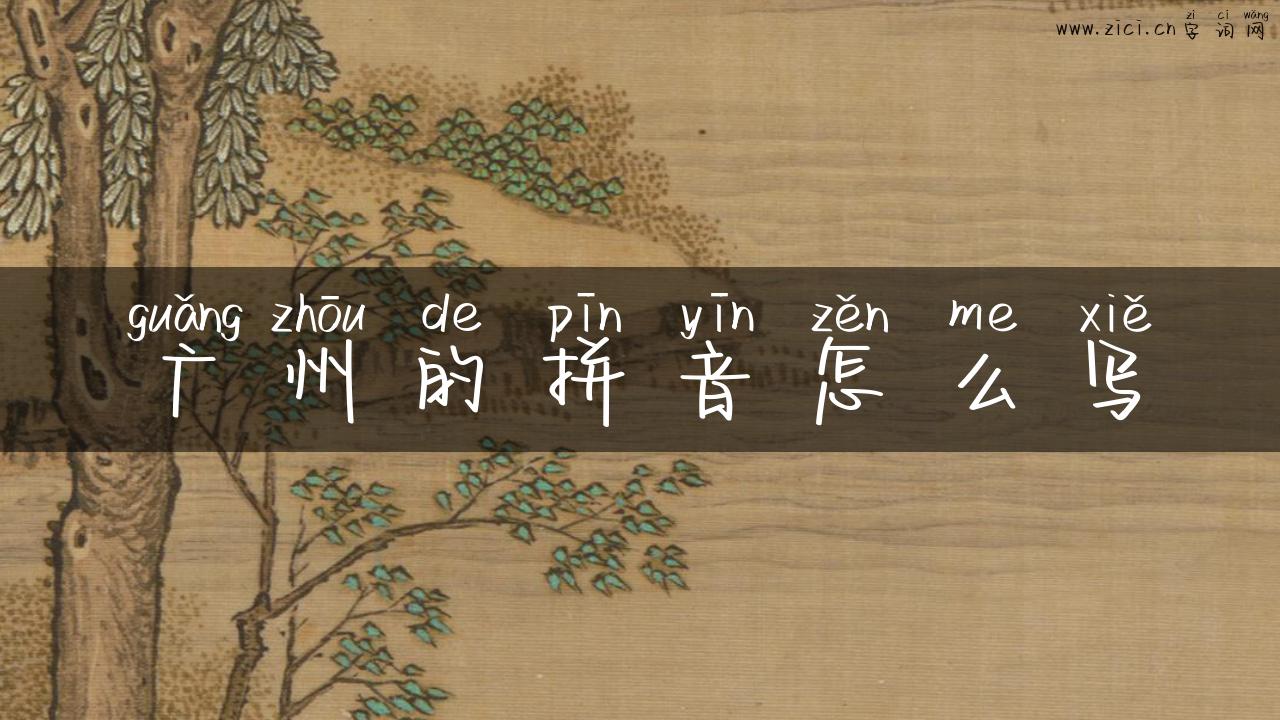 zì cí wǎng
www.zici.cn 字 词 网
guǎng zhōu de pīn yīn zěn me xiě
广 州 的 拼 音 怎 么 写